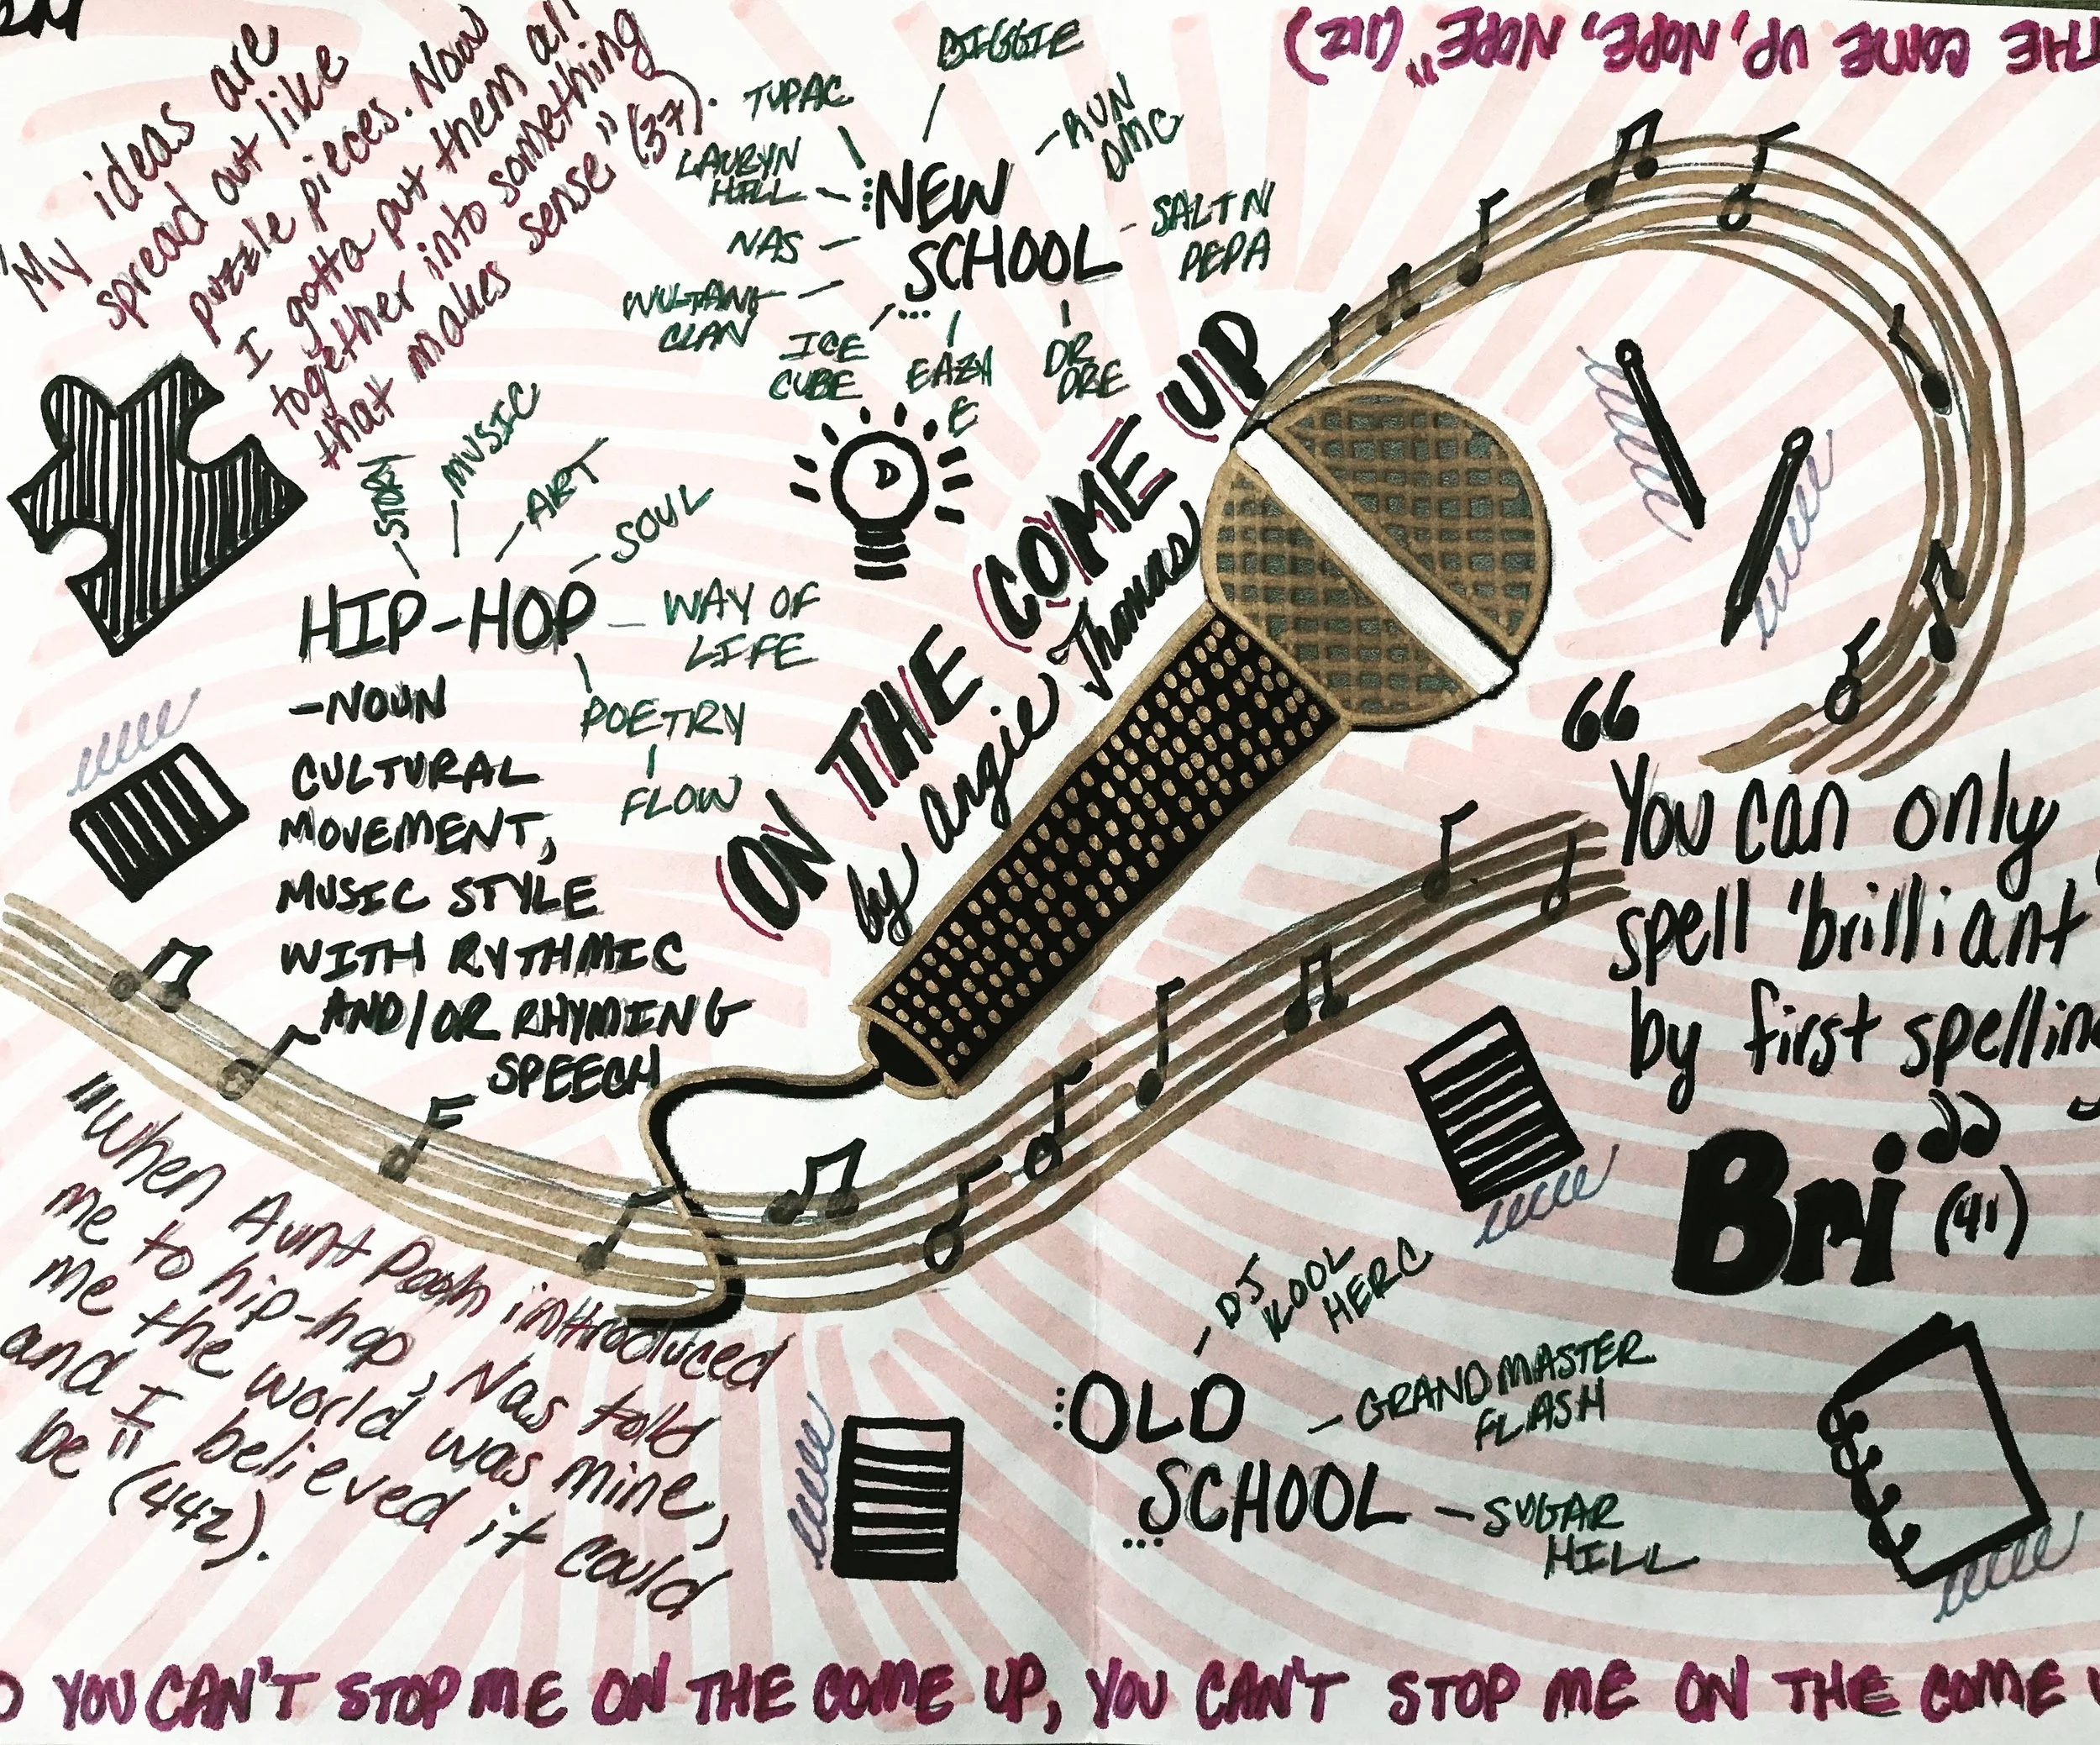 "My ideas are
spread out like
puzzle pieces. Now
I gotta put them all
together into something
that makes sense" (37).
THE COME UP, NOPE, NOPE" (212)
BIGGIE
TUPAC
RUN
DMC
LAURYN
HILL
:NEW
SCHOOL
...
SALT N
PEPA
NAS
WUTANG
CLAN
ICE
CUBE
EAZY
E
DR
DRE
STORY
MUSIC
ART
SOUL
HIP-HOP
WAY OF
LIFE
POETRY
FLOW
-NOUN
CULTURAL
MOVEMENT,
MUSIC STYLE
WITH RYTHMIC
AND/OR RHYMING
SPEECH
ON THE COME UP
by Angie Thomas
"
You can only
spell 'brilliant
by first spelling
Bri"
(41)
"When Aunt Pooh introduced
me to hip-hop, Nas told
me the world was mine,
and I believed it could
be" (442).
:OLD
SCHOOL
...
DJ
KOOL
HERC
GRANDMASTER
FLASH
SUGAR
HILL
YOU CAN'T STOP ME ON THE COME UP, YOU CAN'T STOP ME ON THE COME